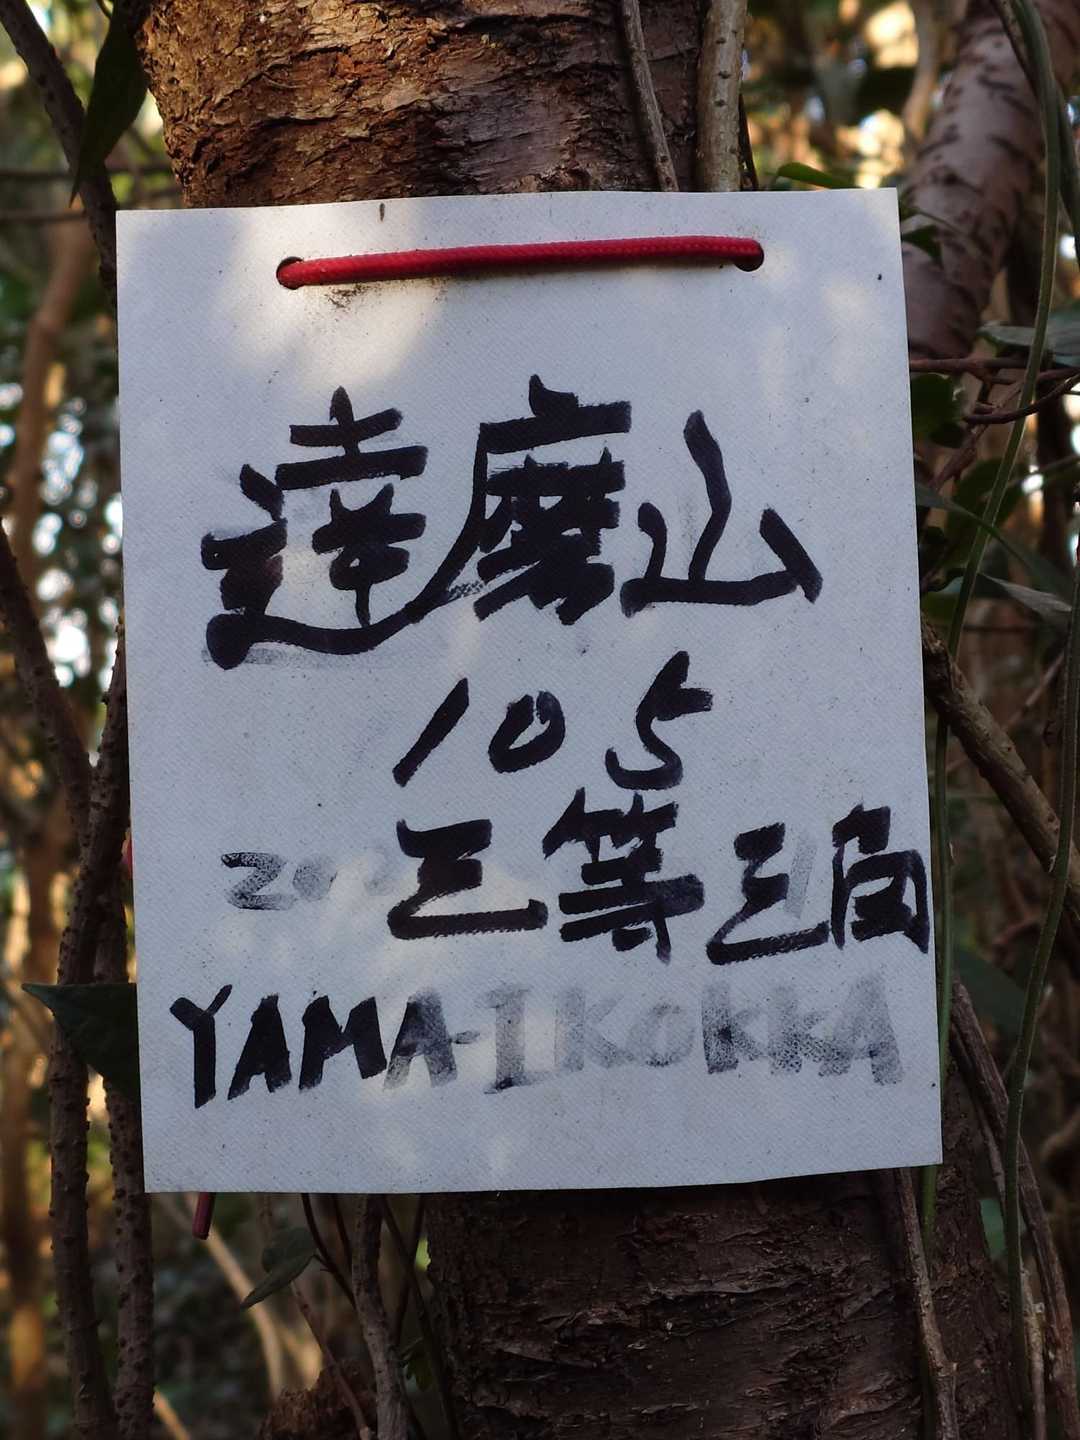 達磨山
105
三等三角
YAMA-IKOKKA